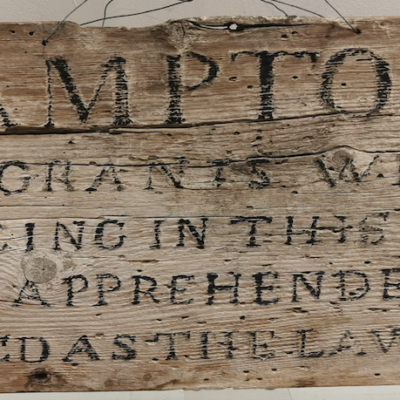 AMPTO
GRANTS W
CING IN THIS
APPREHENDE
ED AS THE LAW